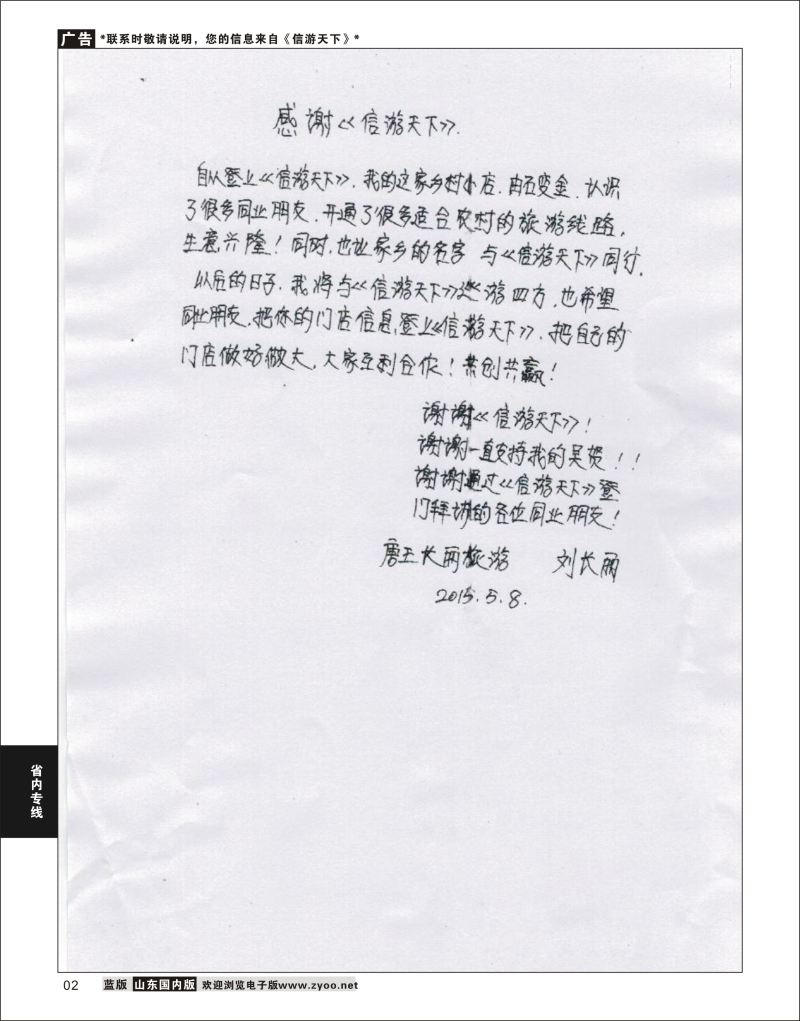 广告 *联系时敬请说明，您的信息来自《信游天下》*
感谢《信游天下》.
自从登上《信游天下》，我的这家乡村小店，由石变金，认识
了很多同业朋友，开通了很多适合农村的旅游线路，
生意兴隆！同时，也让家乡的名字 与《信游天下》同行，
以后的日子，我将与《信游天下》巡游四方，也希望
同业朋友，把你的门店信息，登上《信游天下》，把自己的
门店做好做大，大家互利合作！共创共赢！
谢谢《信游天下》！
谢谢一直支持我的吴贺！！
谢谢通过《信游天下》登
门拜访的各位同业朋友！
唐王长丽旅游 刘长丽
2015.5.8.
省内专线
02 蓝版 山东国内版 欢迎浏览电子版www.zyoo.net